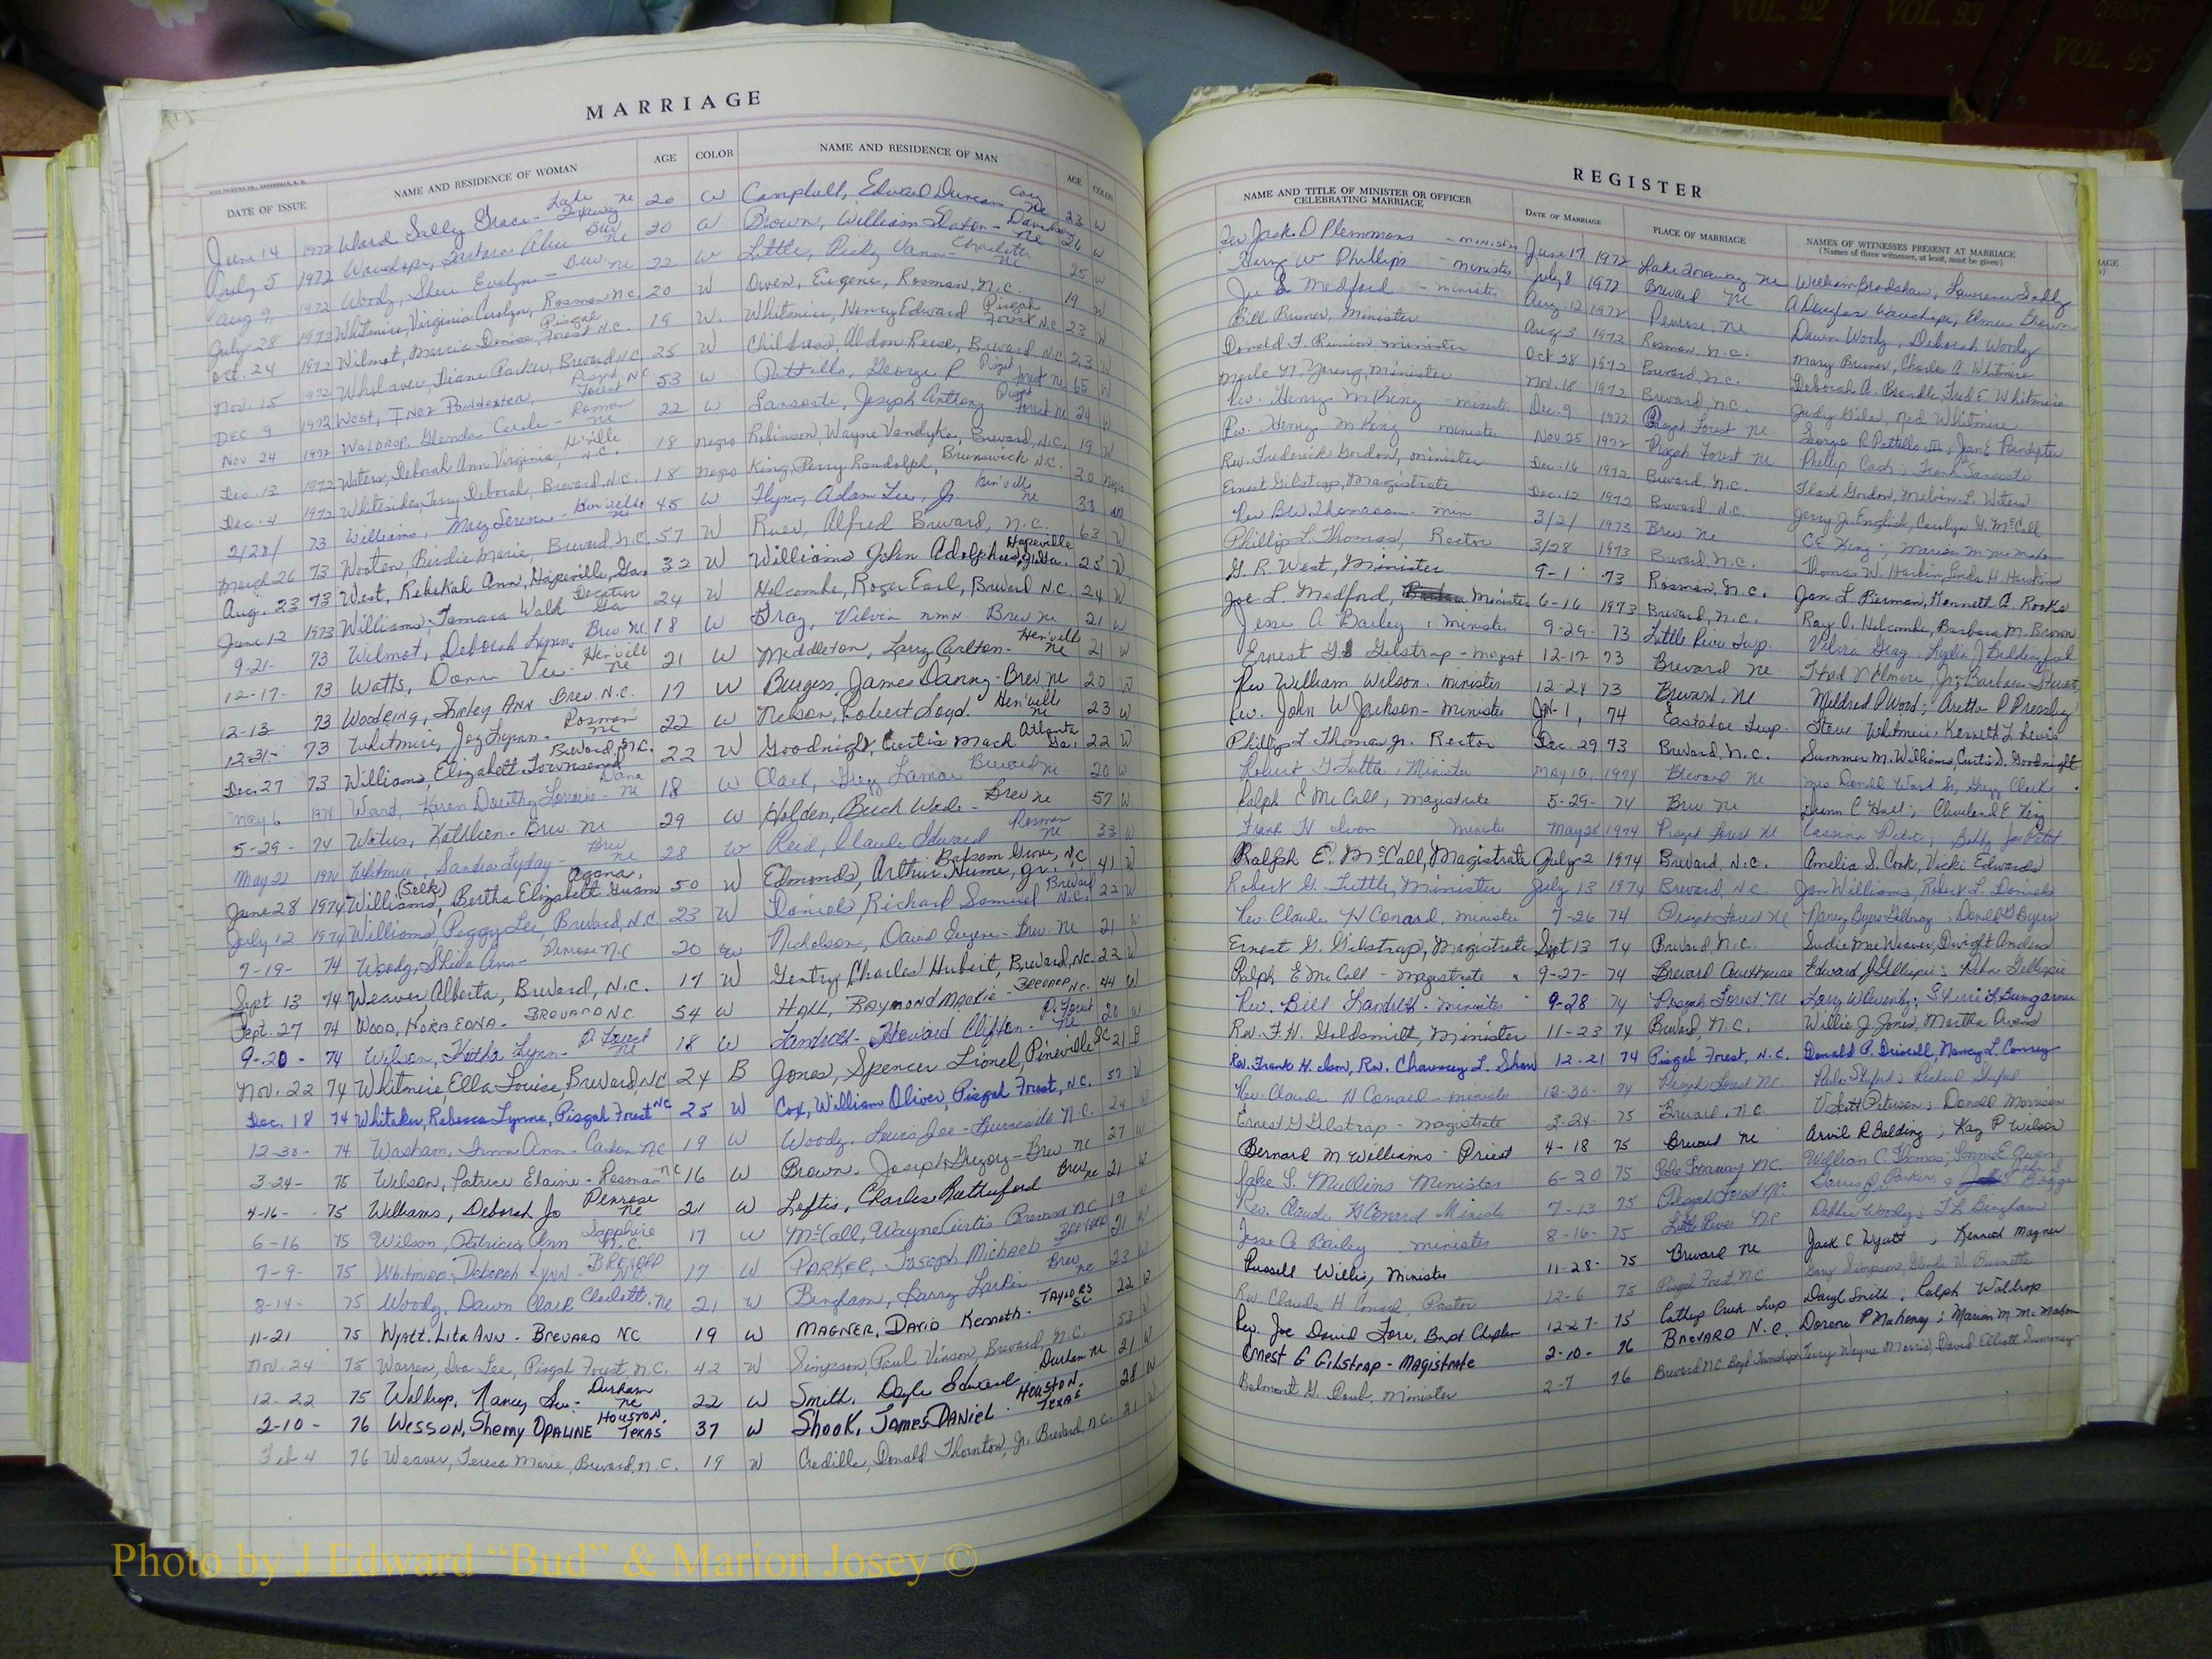 VOL. 90
VOL. 91
VOL. 92
VOL. 93
VOL. 95
MARRIAGE
DATE OF ISSUE NAME AND RESIDENCE OF WOMAN AGE COLOR NAME AND RESIDENCE OF MAN AGE COLOR
June 14 1972 Ward Sally Grace - Lake Toxaway NC 20 W Campbell, Edward Duncan NC 23 W
July 5 1972 Alice - Brev NC 20 W Brown, William Slaton - Davidson NC 26 W
Aug 9, 1972 Woody, Sheri Evelyn - Brev. NC 22 W Little, Ricky Vann - Charlotte NC 25 W
July 28 1972 Whitmire, Virginia Carolyn, Rosman N.C. 20 W Owen, Eugene, Rosman, N.C. 19 W
Oct. 24 1972 Wilmot, Marcia Denise, Pisgah Forest N.C. 19 W. Whitmire, Henry Edward Pisgah Forest N.C. 23 W
Nov. 15 1972 Diane Parker, Brevard N.C. 35 W Childress, Aldon Reese, Brevard, N.C. 23 W
DEC 9 1972 West, Inez Poindexter, Pisgah Forest N.C. 53 W Pattillo, George R. Pisgah Forest NC 65 W
Nov 24 1972 Waldrop, Glenda Carole - Rosman NC 22 W Joseph Anthony Pisgah Forest NC 24 W
Dec. 13 1972 Waters, Deborah Ann Virginia, H'ville N.C. 18 Negro Robinson, Wayne Vandyke, Brevard, N.C. 19 W
Dec. 4 1972 Whitesides, Terry Deborah, Brevard, N.C. 18 Negro King, Perry Randolph, Brunswick N.C. 20 Negro
2/28/ 73 Williams, Mary Serena - Hen'ville NC 45 W Flynn, Adam Lee, Jr. Hen'ville NC 38 W
March 26 73 Wooten, Birdie Marie, Brevard, N.C. 57 W Alfred Brevard, N.C. 63 W
Aug. 23 73 West, Rebekah Ann, Hapeville, Ga. 32 W Williams John Adolphus, Jr. Hapeville Ga. 25 W
June 12 1973 Williams, Tamara Walh Decatur Ga 24 W Holcombe, Roger Earl, Brevard N.C. 24 W
9-21- 73 Wilmot, Deborah Lynn - Brev NC 18 W Gray, Velvin nmn Brev NC 21 W
12-17- 73 Watts, Donna Vee - Hen'vill NC 21 W Middleton, Larry Carlton - Hen'ville NC 21 W
12-13 73 Woodring, Shirley Ann Brev. N.C. 17 W Burgess, James Danny - Brev NC 20 W
12-31- 73 Whitmire, Joy Lynn - Rosman NC 22 W Nelson, Robert Loyd. Hen'ville NC 23 W
Dec. 27 73 Williams, Elizabeth Townsend Brevard, N.C. 22 W Goodnight, Curtis Mack Atlanta Ga. 22 W
May 6 1974 Ward, Karen Dorothy Lorraine - Dana NC 18 W Clark, Gregg Lamar Brevard NC 20 W
5-29- 74 Waters, Kathleen - Brev. NC 29 W Holden, Buck Wade - Brev NC 57 W
May 22 1974 Whitmire, Sandra Lyday - Brev NC 28 W Reid, Claude Edward Rosman NC 33 W
June 28 1974 Williams, (Selk) Bertha Elizabeth Agana, Guam 50 W Edmonds, Arthur Hume, Jr. Balsam Grove, N.C. 41 W
July 12 1974 Williams Peggy Lee, Brevard, N.C. 23 W Daniels Richard Samuel Brevard N.C. 22 W
7-19- 74 Woody, Shila Ann - Penrose N.C 20 W Nicholson, David Eugene - Brev. NC 21 W
Sept 13 74 Weaver Alberta, Brevard, N.C. 17 W Gentry Charles Hubert, Brevard, NC. 22 W
Sept. 27 74 Wood, Nora Edna - Brevard NC 54 W Hall, Raymond Mackie - Brevard NC. 44 W
9-20- 74 Wilson, Keitha Lynn - P. Forest NC 18 W Landreth - Howard Clifton - P. Forest NC 20 W
Nov. 22 74 Whitmire, Ella Louise, Brevard, NC 24 B Jones, Spencer Lionel, Pineville SC 21 B
Dec. 18 74 Whitaker, Rebecca Lynne, Pisgah Forest NC 25 W Cox, William Oliver, Pisgah Forest, N.C. 57 W
12-30- 74 Washam, Ann - Canton NC 19 W Woody, Louis Joe - Burnsville N.C. 24 W
3-24- 75 Wilson, Patrice Elaine - Rosman NC 16 W Brown - Joseph Gregory - Brev NC 27 W
4-16- 75 Williams, Deborah Jo Penrose NC 21 W Loftis, Charles Rutherford Brev NC 21 W
6-16 75 Wilson, Patricia Ann Sapphire N.C. 17 W McCall, Wayne Curtis Brevard NC 19 W
7-9- 75 Whitmire, Deborah Lynn - Brevard N.C. 17 W Parker, Joseph Michael Brevard 21 W
8-14- 75 Woody, Dawn Clare Charlotte, NC 21 W Bingham, Larry Larkin - Brev NC 23 W
11-21 75 Wyatt, Lita Ann - Brevard NC 19 W Magner, David Kenneth - Taylors SC 22 W
Nov. 24 75 Warren, Iva Lee, Pisgah Forest, N.C. 42 W Simpson, Paul Vinson, Brevard, N.C. 53 W
12-22 75 Waldrop, Nancy Lu - Durham NC 22 W Smith, Dayle Edward Durham NC 21 W
2-10- 76 Wesson, Sherry Opaline Houston, Texas 37 W Shook, James Daniel. Houston, Texas 28 W
Feb 4 76 Weaver, Teresa Marie, Brevard, N.C. 19 W Credille, Donald Thornton, Jr. Brevard, N.C. 21 W
REGISTER
NAME AND TITLE OF MINISTER OR OFFICER CELEBRATING MARRIAGE DATE OF MARRIAGE PLACE OF MARRIAGE NAMES OF WITNESSES PRESENT AT MARRIAGE
(Names of three witnesses, at least, must be given)
Rev Jack D Plemmons - minister June 17 1972 Lake Toxaway NC William Bradshaw, Lawrence
W Phillips - minister July 8 1972 Brevard NC A Douglas Elmer Brown
Joe L Medford - minister Aug. 12 1972 Penrose, NC Dawn Woody, Deborah Woody
Bill Bruner, Minister Aug 3 1972 Rosman, N.C. Mary Bruner, Charles A. Whitmire
Donald F. Runion, Minister Oct 28 1972 Brevard, N.C. Deborah A. Fred E. Whitmire
Merle N. Young, Minister Nov. 18 1972 Brevard, N.C. Judy Giles, Ned Whitmire
Rev. Henry M King - minister Dec. 9 1972 Pisgah Forest NC George R Pattillo Jane Poindexter
Rev. Henry M King minister Nov 25 1972 Pisgah Forest NC Phillip Cash; Frank
Rev. Frederick Gordon, minister Dec. 16 1972 Brevard, N.C. Flash Gordon, Melvin L. Waters
Ernest Gilstrap, Magistrate Dec. 12 1972 Brevard N.C. Jerry Jr. English, Carolyn G. McCall
Rev B.W. Thomason - min. 3/2/ 1973 Brev NC CE King; Marion M McMahan
Phillip L. Thomas, Rector 3/28 1973 Brevard, N.C. Thomas W. Harbin, Linda H. Hawkins
G. R. West, Minister 9-1- 73 Rosman, N.C. Jan L. Berman, Kennett A. Rooks
Joe L. Medford, Minister 6-16 1973 Brevard, N.C. Ray D. Holcombe, Barbara M. Brown
Jesse A Bailey, minister 9-29- 73 Little River Twp. Velvia Gray, Lydia J
Ernest G Gilstrap - Magist 12-17 73 Brevard NC Thad V Elmore, Jr; Barbara
Rev William Wilson. minister 12-24 73 Brevard, NC Mildred P Wood; Aretta P Pressley
Rev. John W Jackson - minister Jan-1, 74 Eastatoe Twp. Steve Whitmire, Kenneth L Lewis
Phillip L Thomas Jr. Rector Dec. 29 73 Brevard, N.C. Summer M. Williams, Curtis D. Goodnight
Robert G Tuttle, Minister May 10, 1974 Brevard NC Mrs Donald Ward Sr, Gregg Clark
Ralph E McCall, Magistrate 5-29- 74 Brev NC C Hall; Cleveland E King
Frank H Ison minister May 25 1974 Pisgah Forest NC Petit; Betty Jo Petit
Ralph E. McCall, Magistrate July 2 1974 Brevard N.C. Amelia S. Cook, Vicki Edwards
Robert G. Tuttle, Minister July 13 1974 Brevard, N.C. Jan Williams, Robert L. Daniels
Rev. Claude H Conard, minister 7-26 74 Pisgah Forest NC Nancy Byers Galloway, Donald G Byers
Ernest G. Gilstrap, Magistrate Sept 13 74 Brevard, N.C. Sudie Mae Weaver, Dwight Anders
Ralph E McCall - Magistrate 9-27- 74 Brevard Courthouse Edward J Gillespie; Gillespie
Rev. Bill Landreth - minister 9-28 74 Pisgah Forest NC Larry W Owenby; Sherri L Bumgarner
Rev. F.H. Goldsmith, Minister 11-23 74 Brevard, N.C. Willie J. Jones, Martha Owens
Rev. Frank H. Ison, Rev. Chauncey L. Shaw 12-21 74 Pisgah Forest, N.C. Donald P. Driscoll, Nancy L. Conroy
Rev. Claude H Conard - minister 12-30- 74 Pisgah Forest NC.
Ernest G Gilstrap - magistrate 3-24- 75 Brevard, N.C. V Scott Peterson; Donald Morrison
Bernard M Williams - Priest 4-18 75 Brevard NC Arvil R Balding; Kay P Wilson
Jake S. Mullins Minister 6-20 75 Lake Toxaway N.C. William C. Thomas; Owen
Rev. Claude H Conard Minister 7-13 75 Pisgah Forest NC. Parker,
Jesse A Bailey minister 8-16- 75 Little River NC Debbie Woody; T L Bingham
Russell Willis, Minister 11-28- 75 Brevard NC Jack C Wyatt, Kenneth Magner
Rev. Claude H. Conard, Pastor 12-6 75 Pisgah Forest, N.C Gary Simpson, Glenda
Rev. Joe David Fore, Bapt Chaplain 12-27- 75 Catheys Creek Twp Daryl Smith; Ralph Waldrop
Ernest G Gilstrap - Magistrate 2-10- 76 Brevard N.C. Dorene P Mahoney; Marion M McMahan
Belmont G. Minister 2-7 76 Brevard NC Boyd Township Terry Wayne Morris, David Elliott Summey
Photo by J Edward “Bud” & Marion Josey ©